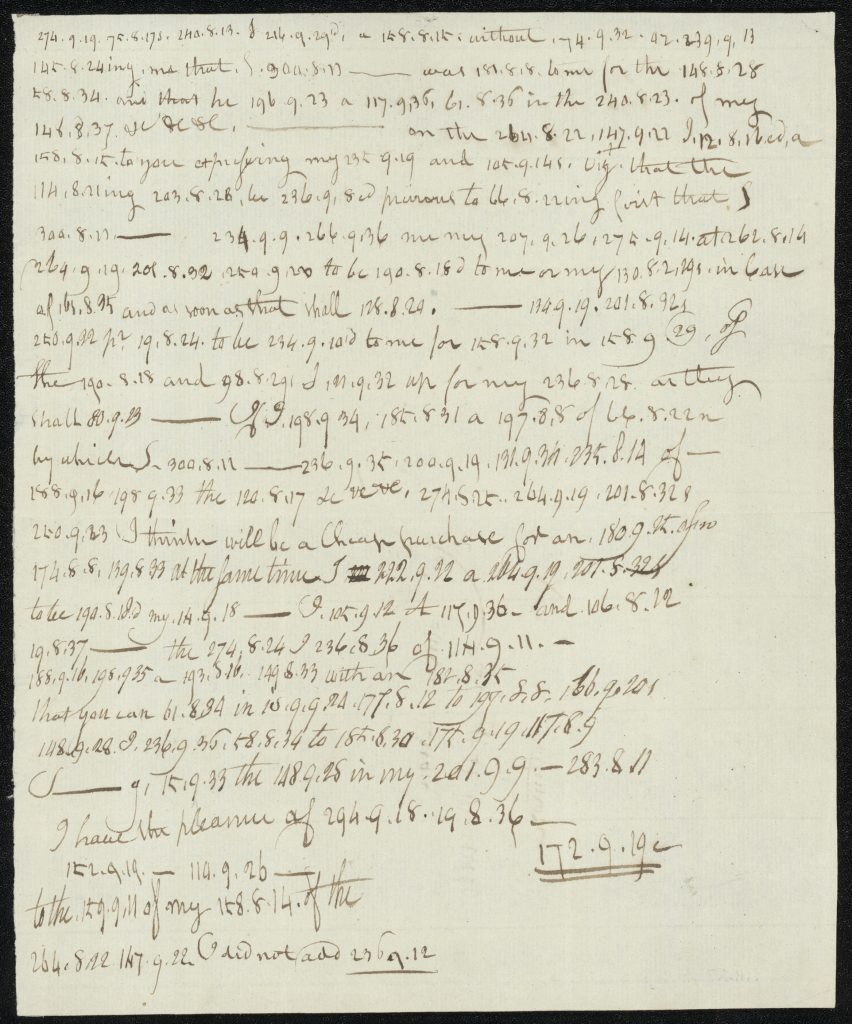 274.9.19. 75.8.17s. 240.8.13. I 216.9.29d, a 158.8.15. without, 74.9.32. 42.239.9.13
145.8.24ing, me that. S. 300.8.11 —— was 181.8.8. to me for the 148.8.28
58.8.34. and that he 196.9.23 a 117.9.36, 61.8.36 in the 240.8.23. of my
148.8.37. &c &c &c. —— on the 264.8.22, 147.9.22 I, 12.8.16ed, a
158.8.15. to you expressing my 235.9.19 and 105.9.14s. Viz. that the
114.8.21ing 203.8.28, be 236.9.8ed previous to 66.8.22ing first that S
300.8.11. —— 234.9.9. 266.9.36 me my 207.9.26, 275.9.14. at 262.8.14
264.9.19. 201.8.32. 250.9.28 to be 190.8.18d to me or my 130.8.2,29s. in Case
of 161.8.35 and as soon as that shall 128.8.29. —— 134.9.19. 201.8.32s
250.9.22 pr. 19.8.24. to be 234.9.10d to me for 158.9.32 in 158.9 29, of
the 190.8.18 and 98.8.29, I 121.9.32 up for my 236.8.28. as they
shall 80.9.23 —— If I. 198.9.34, 185.8.31 a 197.8.8 of 66.8.22n
by which S. 300.8.11 —— 236.9.35. 200.9.19. 131.9.34. 235.8.14 of —
188.9.16. 198.9.33 the 120.8.17 &c &c &c. 274.8.25. 264.9.19. 201.8.32s
250.9.23 I think will be a Cheap purchase for an, 180.9.25. also
174.8.8. 139.8.33 at the same time. I 222.9.22 a 264.9.19. 201.8.32s
to be 190.8.18d my. 14.9.18 —— I. 105.9.12 A 117.9.36 — and 106.8.22
19.8.37 —— the 274.8.24 I 236.8.36 of 114.9.11. —
188.9.16. 198.9.35 a 193.8.16. 149.8.33 with an 182.8.35
that you can 61.8.34 in 15.9.9.24. 177.8.12 to 197.8.8. 166.9.20s
148.9.28. I. 236.9.36. 58.8.34 to 185.8.30. 175.9.19. 117.8.9
S —— g, 15.9.33 the 148.9.28 in my. 201.9.9. — 283.8.11
I have the pleasure of 294.9.18. 19.8.36 —
172.9.19c
152.9.19. — 114.9.26 —
to the, 159.9.11 of my 158.8.14. of the
264.8.22 147.9.22. I did not add 236.9.12